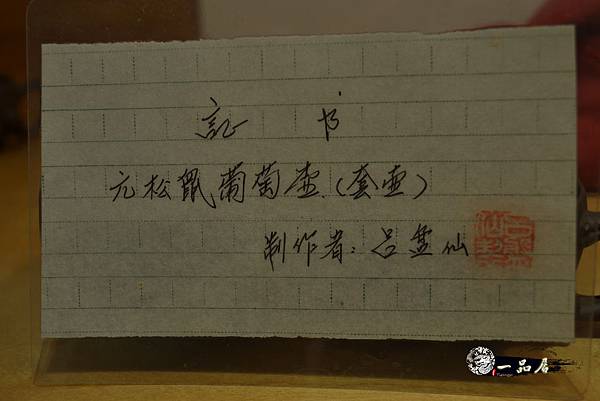 証 书
六松鼠葡萄壶(套壶)
制作者:吕尧仙
一品居